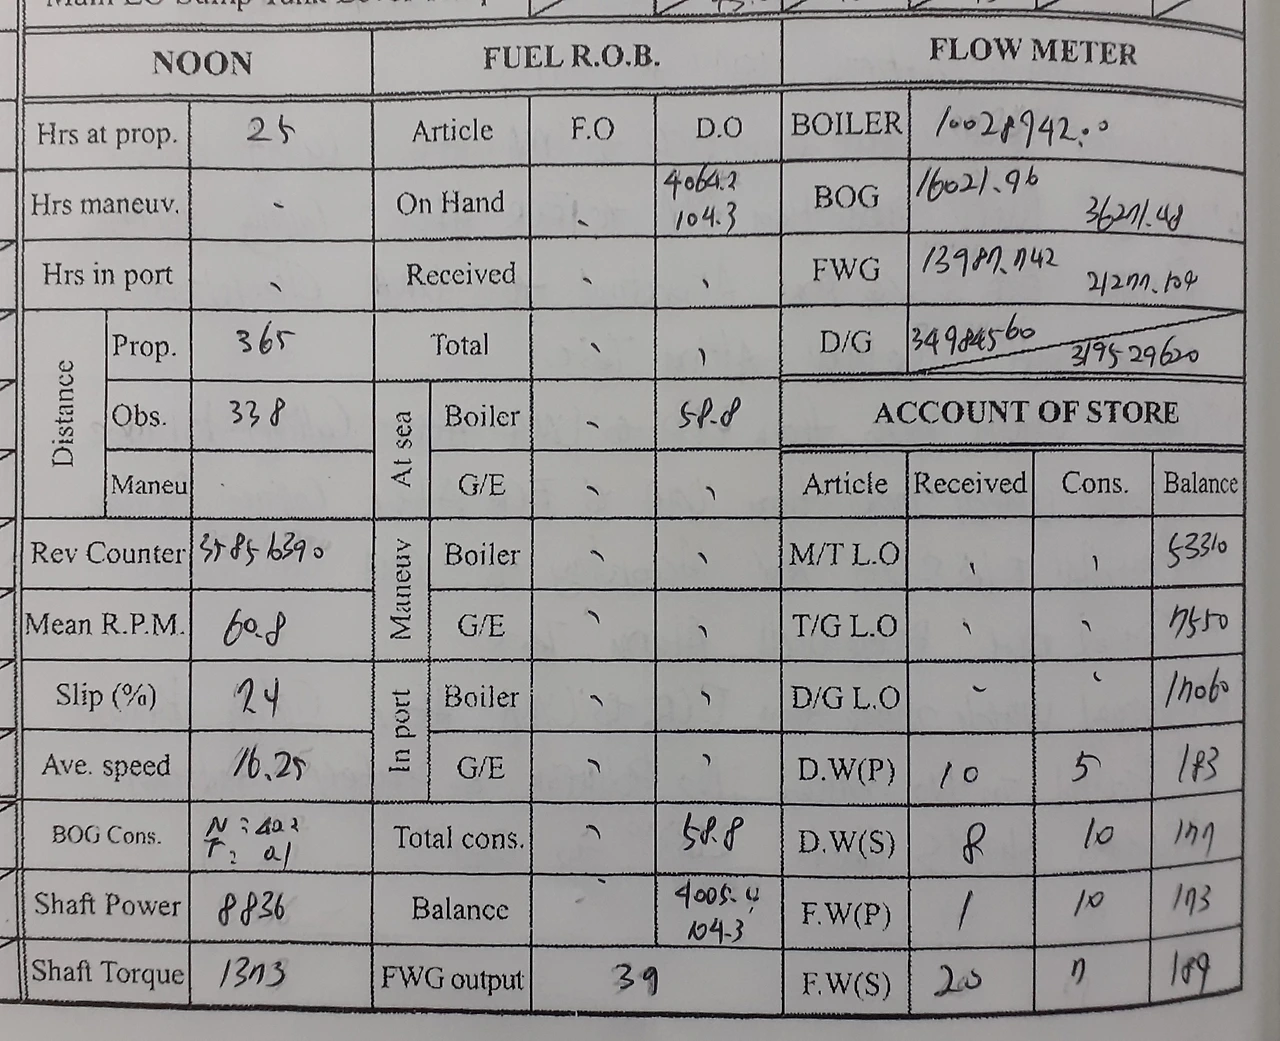 NOON FUEL R.O.B. FLOW METER
Hrs at prop. 25 Article F.O D.O BOILER 10028942.0
Hrs maneuv. - On Hand - 4064.2 104.3 BOG 16021.96 36271.48
Hrs in port - Received - - FWG 13987.742 21277.104
Distance Prop. 365 Total - - D/G 34984560 319529620
Obs. 338 At sea Boiler - 58.8 ACCOUNT OF STORE
Maneu G/E - - Article Received Cons. Balance
Rev Counter 35856390 Maneuv Boiler - - M/T L.O - - 53310
Mean R.P.M. 60.8 G/E - - T/G L.O - - 7550
Slip (%) 24 In port Boiler - - D/G L.O - - 17060
Ave. speed 16.25 G/E - - D.W(P) 10 5 183
BOG Cons. Total cons. - 58.8 D.W(S) 8 10 177
Shaft Power 8836 Balance - 4005.4 104.3 F.W(P) 1 10 173
Shaft Torque 1373 FWG output 39 F.W(S) 20 7 189